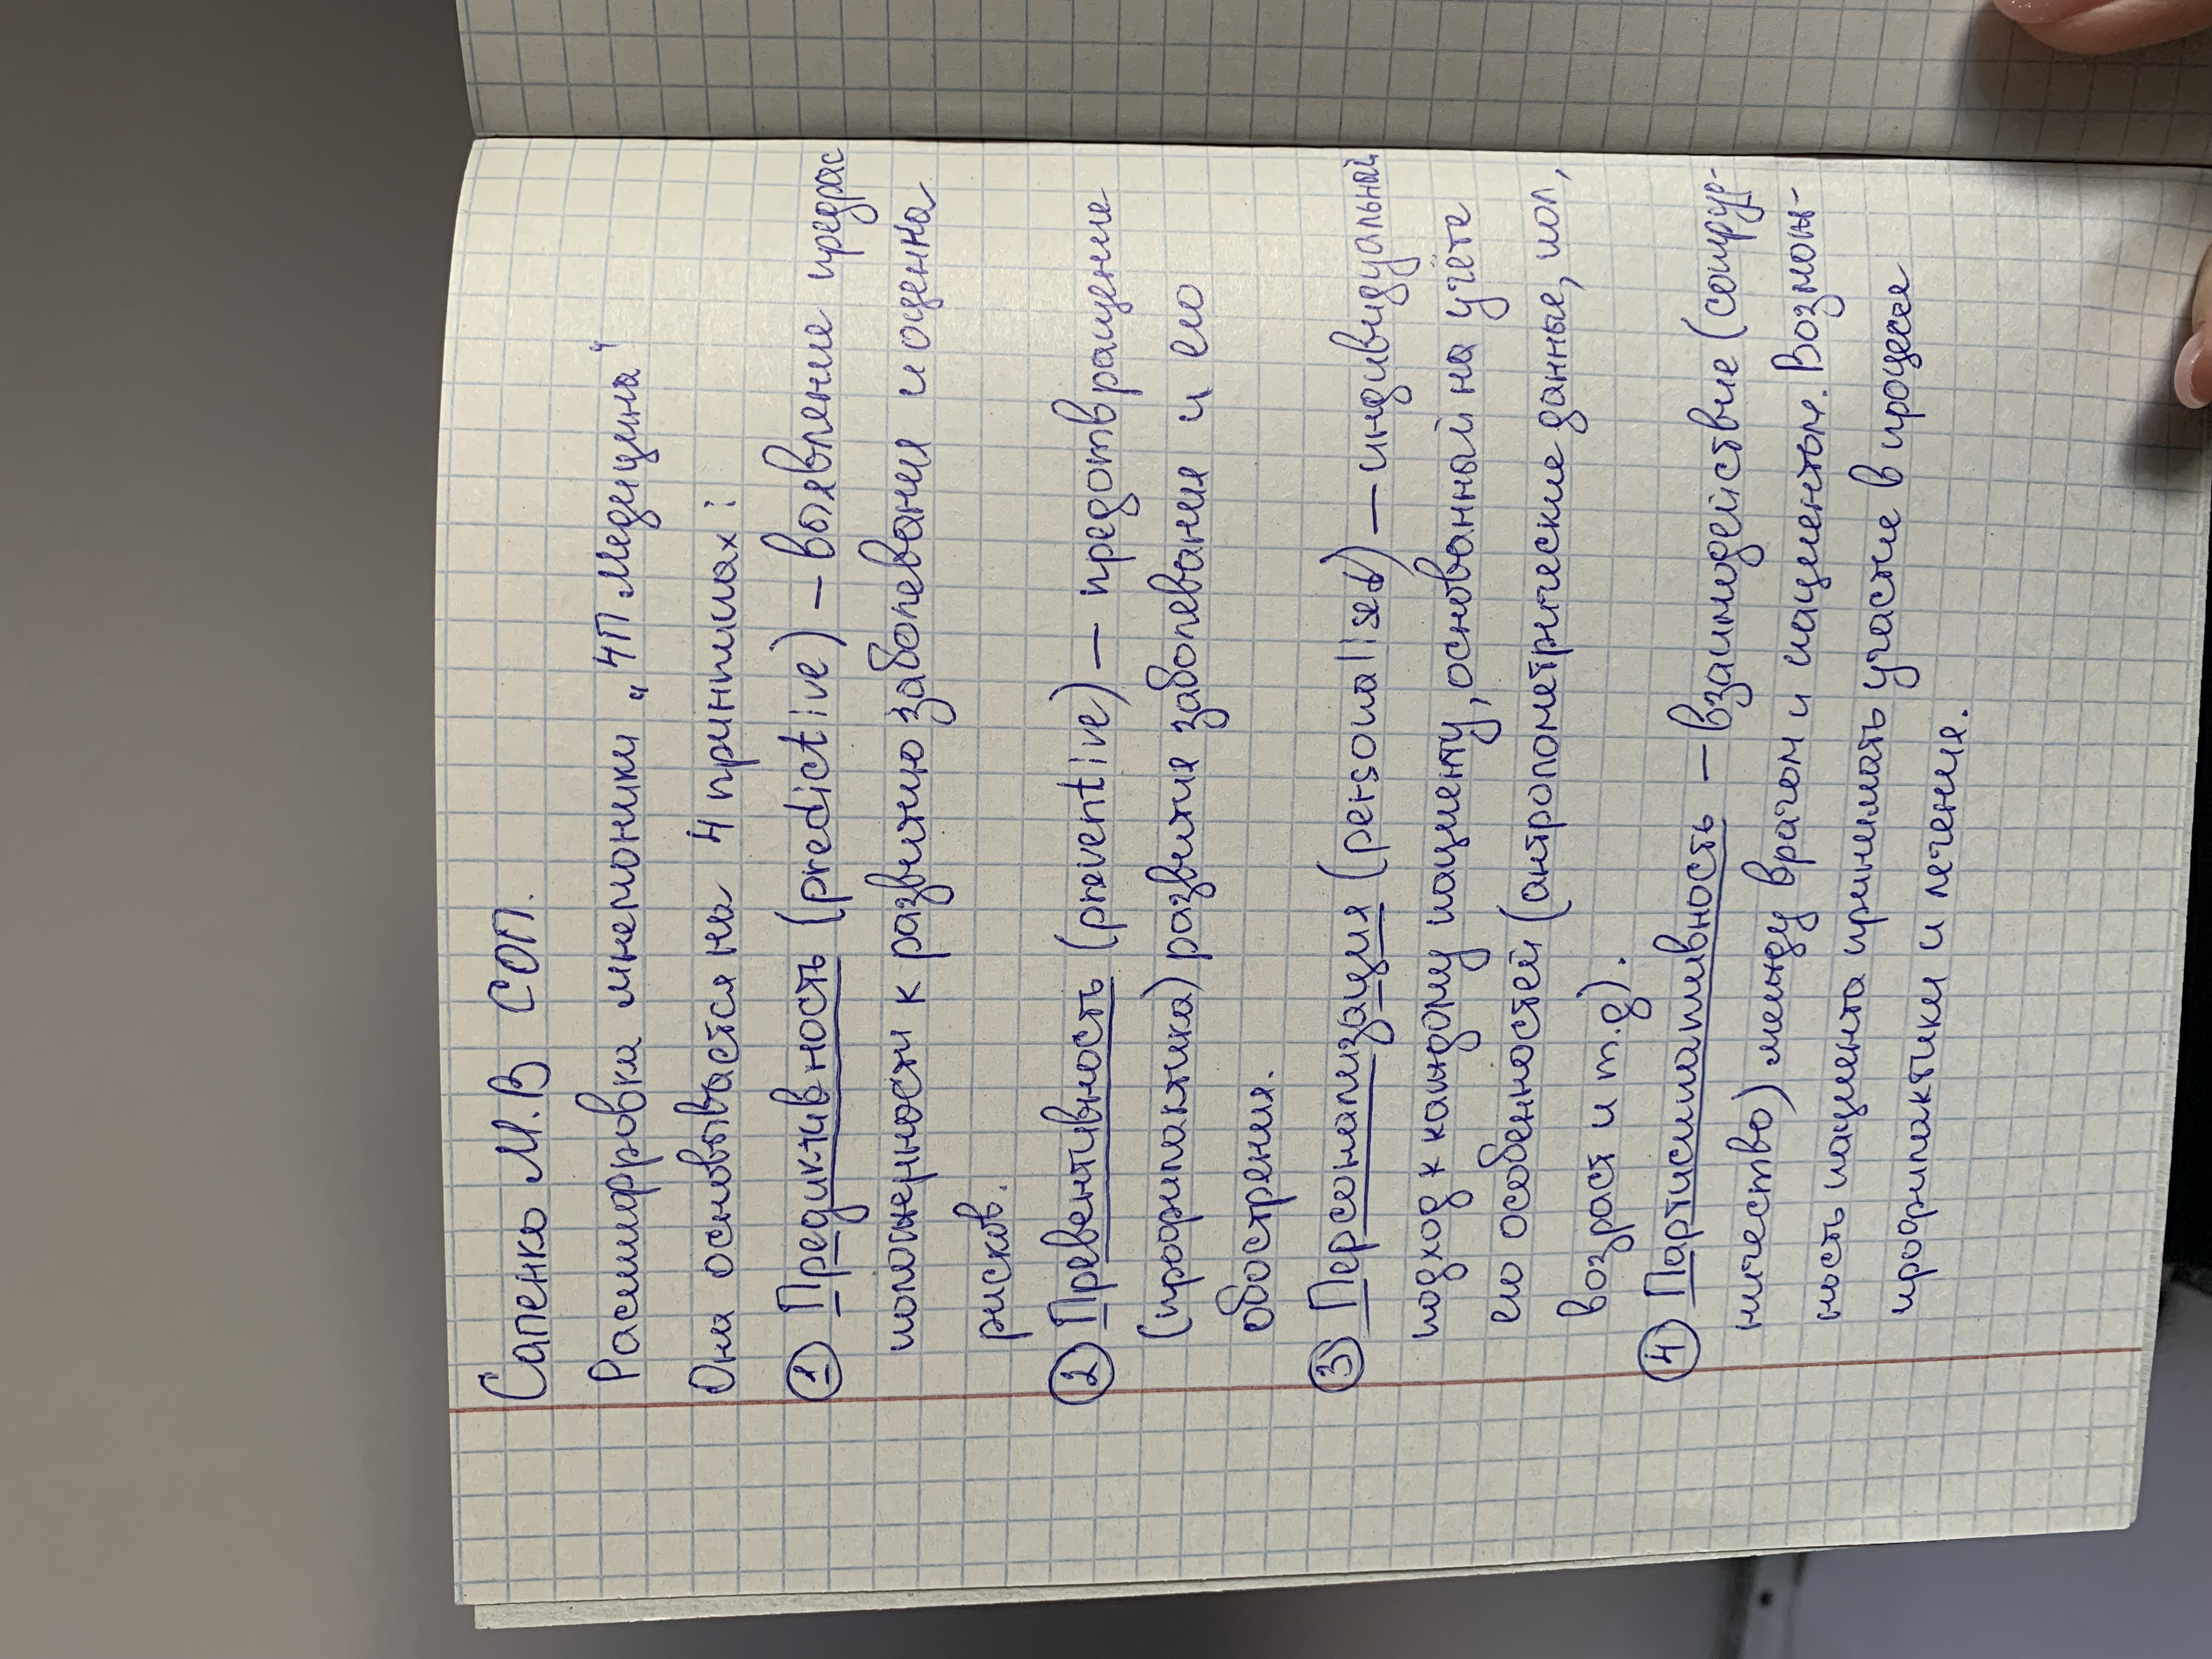 Сапенко М.В СОП.
Расшифровка мнемоники "4П Медецина"
Она основывается на 4 принципах:
① Предиктивность (predictive) – выявление предрас
положенности к развитию заболевания и оценка
рисков.
② Превентивность (preventive) – предотвращение
(профилактика) развитие заболевания и его
обострения.
③ Персонализация (personalised) – индивидуальный
подход к каждому пациенту, основанный на учёте
его особенностей (антропометрические данные, пол,
возраст и т.д).
④ Партисипативность – взаимодействие (сотруд-
ничество) между врачом и пациентом. Возмож-
ность пациента принимать участие в процессе
профилактики и лечение.